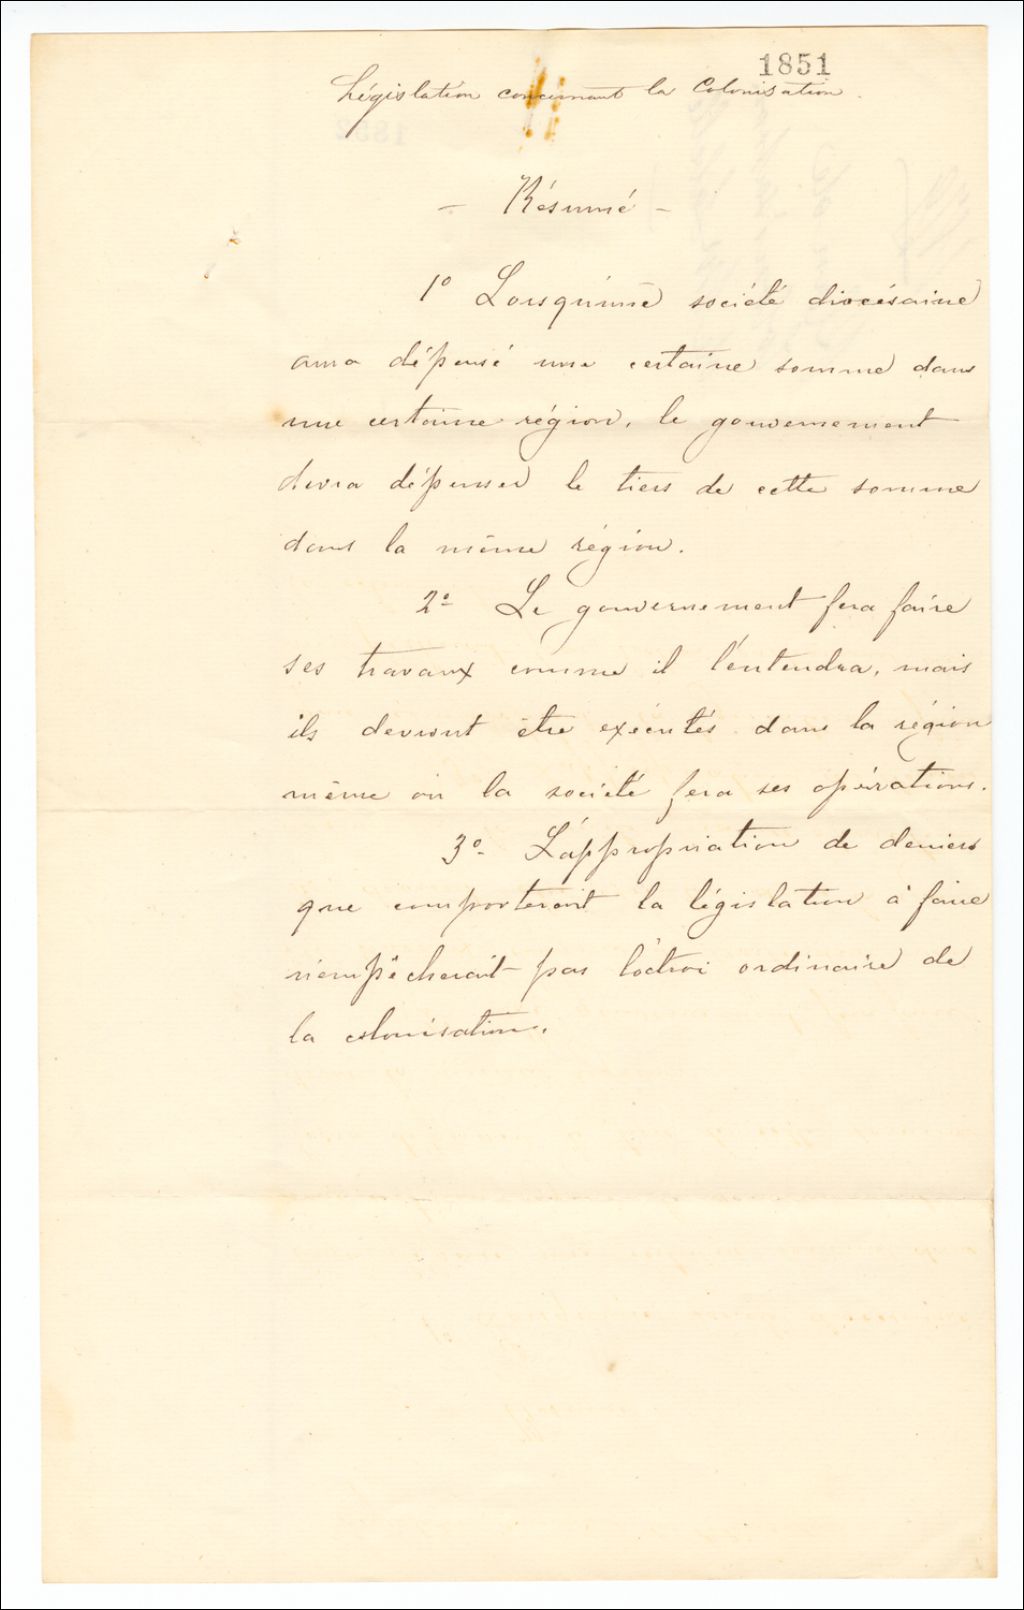 1851
Législation concernant la Colonisation.
- Résumé -
1º Lorsqu'une société diocésaine
aura dépensé une certaine somme dans
une certaine région, le gouvernement
devra dépenser le tiers de cette somme
dans la même région.
2º Le gouvernement fera faire
ses travaux comme il l'entendra, mais
ils devront être exécutés dans la région
même où la société fera ses opérations.
3º L'appropriation de deniers
que comporterait la législation à faire
n'empêcherait pas l'octroi ordinaire de
la colonisation.